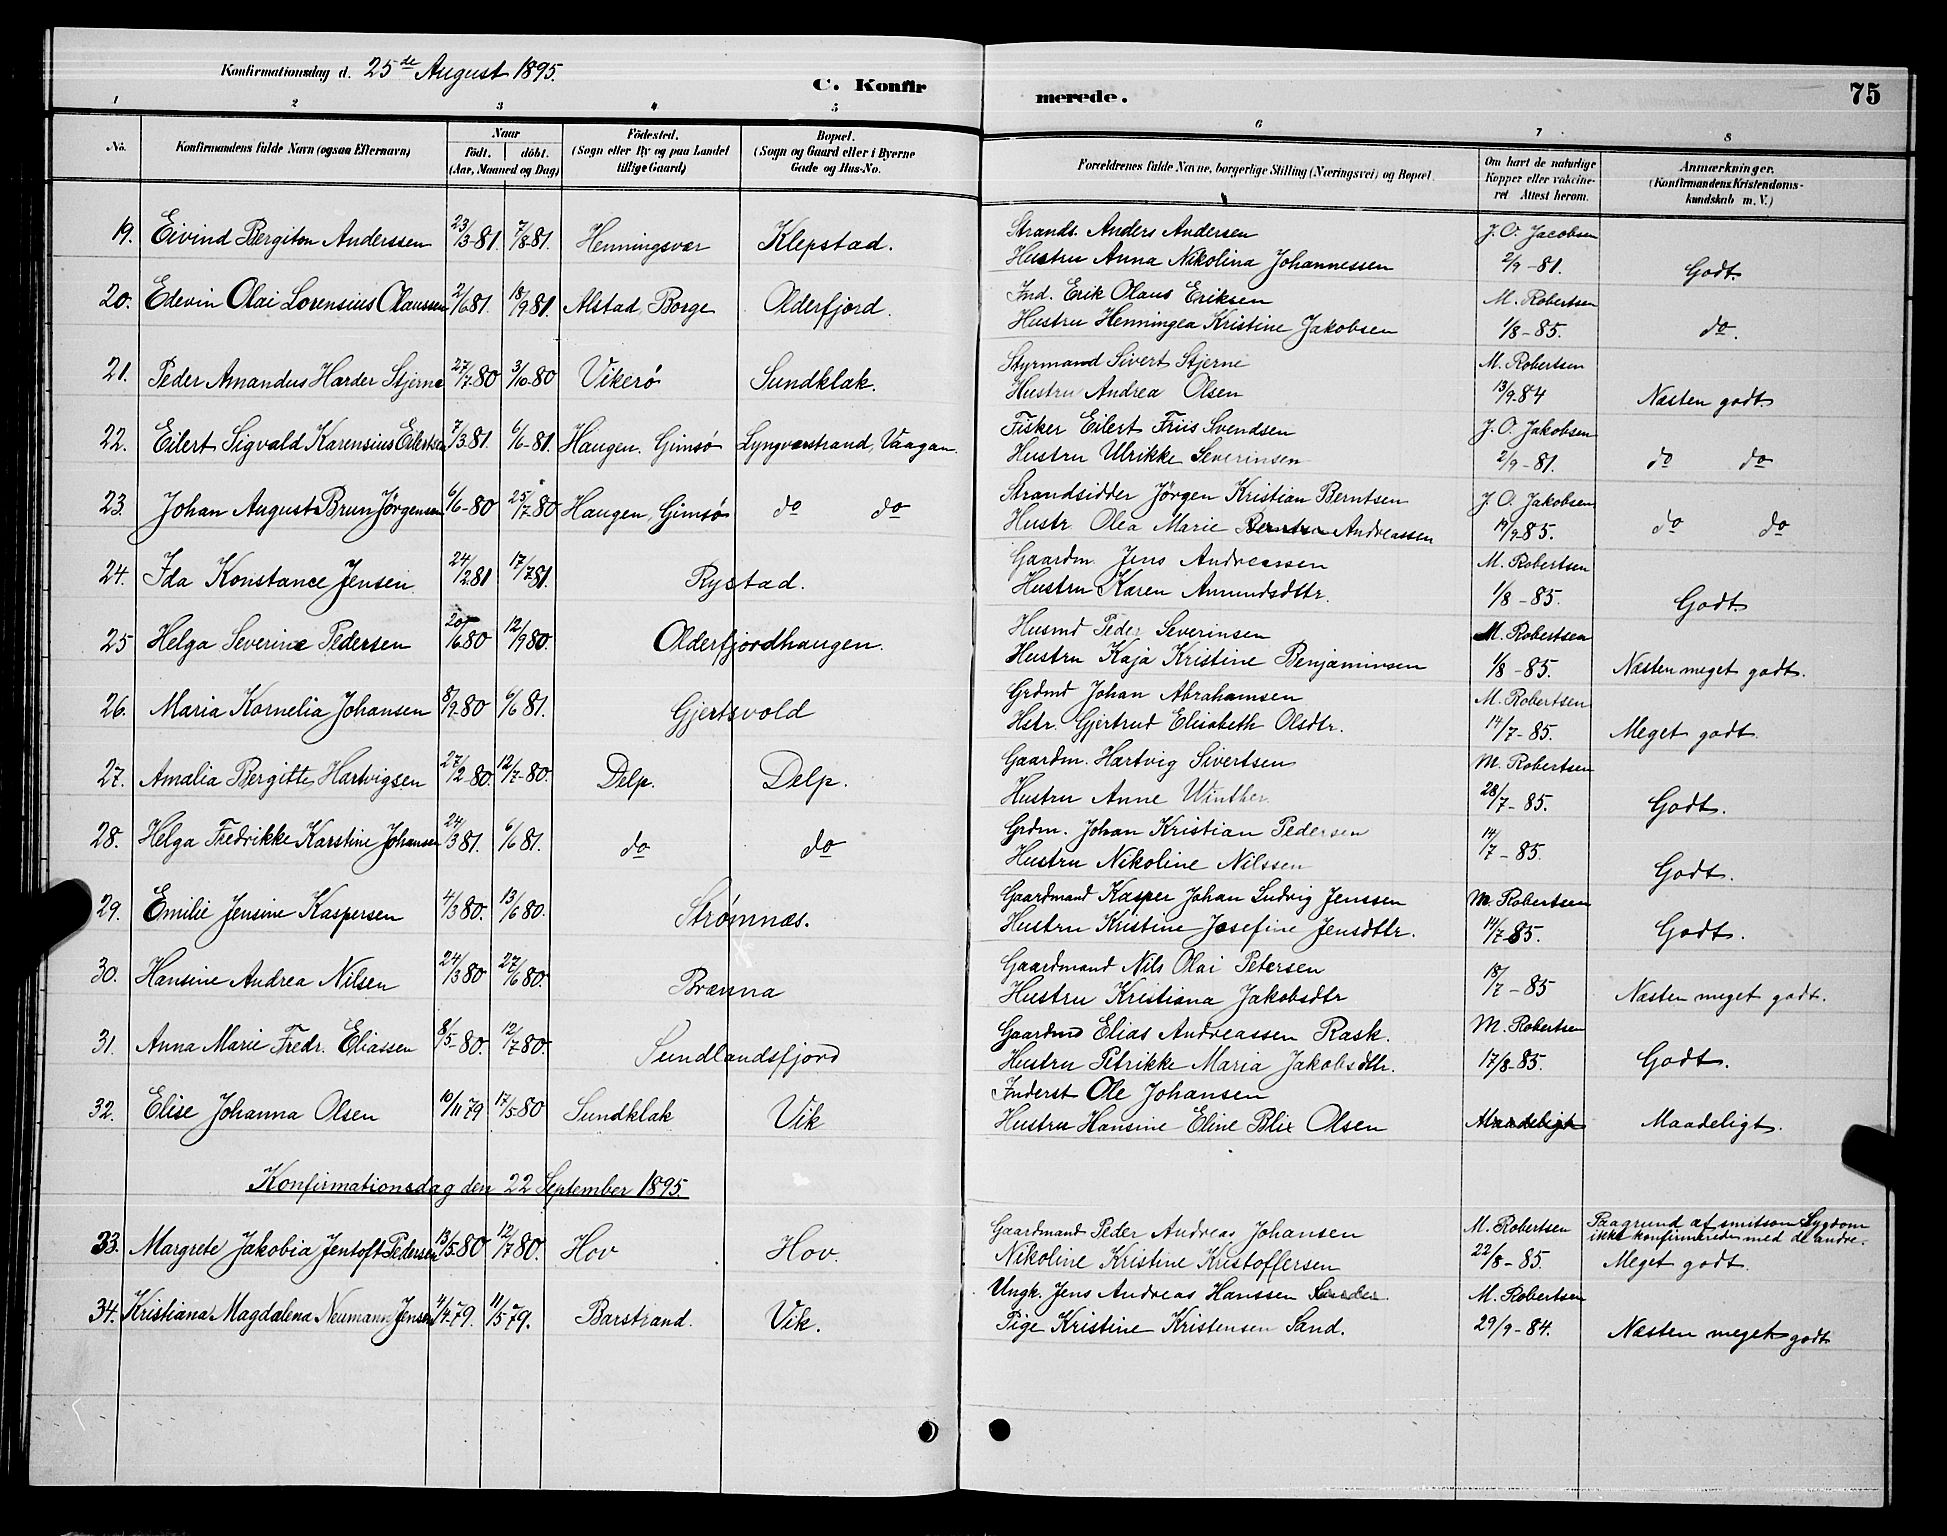 Konfirmationsdag d. 25de August 1895.
C. Konfirmerede.
75
1 2 3 4 5 6 7 8
No. Konfirmandens fulde Navn (ogsaa Efternavn) Naar födt. döbt. (Aar, Maaned og Dag) Födested. (Sogn eller By og paa Landet tillige Gaard) Bopæl. (Sogn og Gaard eller i Byerne Gade og Hus-No. Forældrenes fulde Navne, borgerlige Stilling (Næringsvei) og Bopæl. Om havt de naturlige Kopper eller vakcineret Attest herom. Anmærkninger. (Konfirmandens Kristendomskundskab m. V.)
19. Eivind Bergiton Anderssen 23/3-81. 7/8-81. Henningsvær Klepstad. Strands. Anders Andersen J. O. Jacobsen
Hustru Anna Nikolina Johannessen 2/9-81. Godt.
20. Edevin Olai Lorensius Olaussen 2/6 81. 18/9 81. Alstad, Borge Olderfjord. Ind. Erik Olaus Eriksen M. Robertsen
Hustru Henningea Kristine Jakobsen 1/8-85. do.
21. Peder Amandus Harder Stjerne 27/7-80 3/10-80 Vikerö Sundklak. Styrmand Sivert Stjerne M. Robertsen
Hustru Andrea Olsen 13/9-84 Næsten godt.
22. Eilert Sigvald Karensius Eilertsen 7/3 81. 6/6-81. Haugen. Gimsö Lyngværstrand, Vaagan. Fisker Eilert Friis Svendsen J. O. Jakobsen
Hustru Ulrikke Severinsen 2/9-81. do do
23. Johan August Brun Jörgensen 6/6-80 25/7-80 Haugen, Gimsö do do Strandsidder Jörgen Kristian Berntsen J. O. Jakobsen
Hustr Olea Marie Berntsen Andreassen 19/9-85. do do
24. Ida Konstance Jensen. 24/2 81 17/7 81. Rystad. Gaardm. Jens Andreassen M. Robertsen
Hustru Karen Amundsdttr. 1/8-85. Godt
25 Helga Severine Pedersen 20/6 80 12/9 80. Olderfjordhaugen. Husmd Peder Severinsen M. Robertsen
Hustru Kaja Kristine Benjaminsen 1/8-85. Næsten meget godt.
26. Maria Kornelia Johansen 8/9-80 6/6 81. Gjertsvold Grdmd Johan Abrahamsen M. Robertsen
Hstr. Gjertrud Elisabeth Olsdtr. 14/7-85. Meget godt
27. Amalia Bergitte Hartvigsen 27/2-80. 12/7-80. Delp. Delp. Gaardm. Hartvig Sivertsen M. Robertsen
Hustru Anne Winther. 28/7-85. Godt.
28. Helga Fredrikke Karstine Johansen 24/3 81. 6/6 81. do do Grdm. Johan Kristian Pedersen
Hustru Nikoline Nilssen 14/7-85. Godt.
29. Emilie Jensine Kaspersen 4/3 80. 13/6 80. Strömnæs. Gaardmand Kasper Johan Ludvig Jenssen M. Robertsen
Hustru Kristine Josefine Jensdttr. 14/7 85. Godt.
30. Hansine Andrea Nilsen 24/3 80 27/6 80. Brænna Gaardmand Nils Olai Petersen
Hustru Kristiana Jakobsdtr 18/7-85 Næsten meget godt.
31. Anna Marie Fredr. Eliassen 8/5-80. 12/7 80. Sundlandsfjord Gaardmd Elias Andreassen Rask. M. Robertsen
Hustru Petrikke Maria Jakobsdttr. 17/8-85. Godt.
32. Elise Johanna Olsen 10/11 79 17/5-80 Sundklak Vik Inderst Ole Johansen
Hustru Hansine Eline Blix Olsen Maadeligt Maadeligt.
Konfirmationsdag den 22 September 1895
33. Margrete Jakobia Jentoft Pedersen 13/5 80 12/7 80. Hov Hov. Gaardmand Peder Andreas Johansen M. Robertsen Paagrund af smitsom Sygdom
ikke konfirmereds med de andre.
Nikoline Kristine Kristoffersen 22/8-85. Meget godt.
34. Kristiana Magdalena Neumann Jensen 4/4-79. 11/5 79. Barstrand. Vik. Ungk. Jens Andreas Hanssen M. Robertsen
Pige Kristine Kristensen Sand. 29/9-84. Næsten meget godt